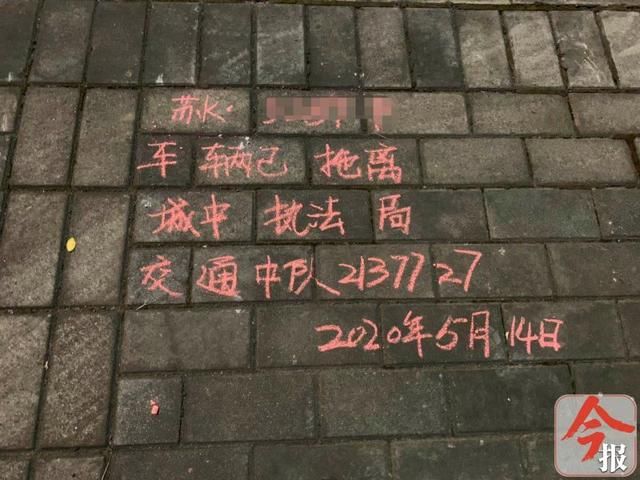 苏K·
车辆已拖离
城中执法局
交通中队2137727
2020年5月14日
今报